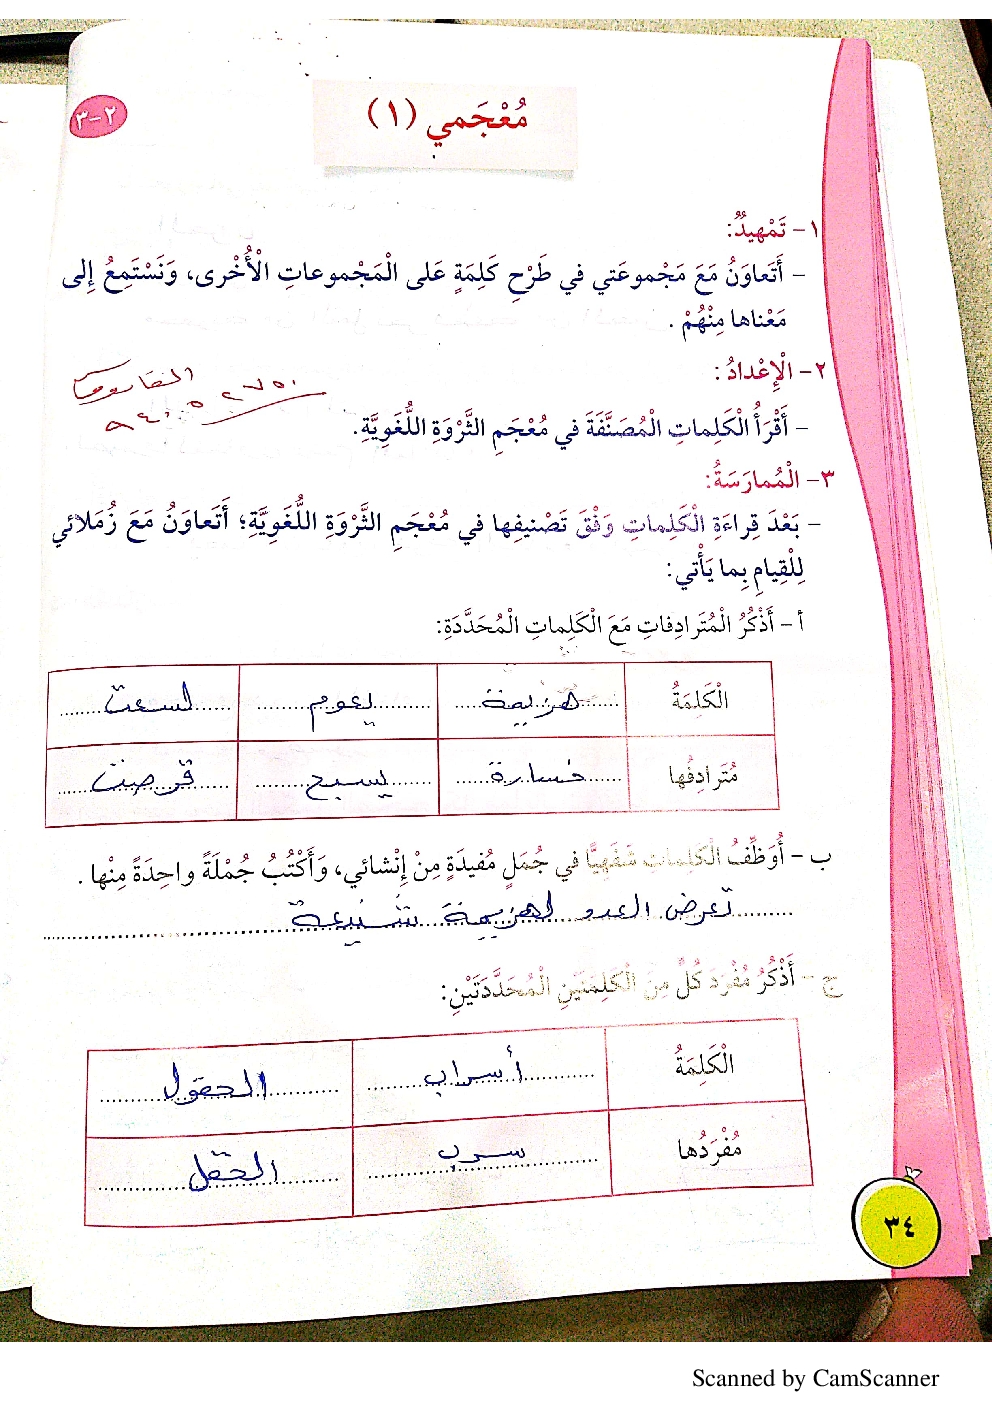 مُعْجَمي (١)
٢-٣
١- تَمْهيدٌ:
- أَتَعاوَنُ مَعَ مَجْموعَتي في طَرْحِ كَلِمَةٍ عَلى الْمَجْموعاتِ الْأُخْرى، وَنَسْتَمِعُ إِلى
مَعْناها مِنْهُمْ .
٢- الْإِعْدادُ :
- أَقْرَأُ الْكَلِماتِ الْمُصَنَّفَةَ في مُعْجَمِ الثَّرْوَةِ اللُّغَوِيَّةِ.
٣- الْمُمارَسَةُ:
- بَعْدَ قِراءَةِ الْكَلِماتِ وَفْقَ تَصْنيفِها في مُعْجَمِ الثَّرْوَةِ اللُّغَوِيَّةِ؛ أَتَعاوَنُ مَعَ زُمَلائي
لِلْقِيامِ بِما يَأْتي:
أ - أَذْكُرُ الْمُتَرادِفاتِ مَعَ الْكَلِماتِ الْمُحَدَّدَةِ:
الْكَلِمَةُ هزيمة يعوم لسعت
مُتَرادِفُها خسارة يسبح قرصت
ب - أُوَظِّفُ الْكَلِماتِ شَفَهِيًّا في جُمَلٍ مُفيدَةٍ مِنْ إِنْشائي، وَأَكْتُبُ جُمْلَةً واحِدَةً مِنْها .
تعرض العدو لهزيمة شنيعة
ج - أَذْكُرُ مُفْرَدَ كُلٍّ مِنَ الْكَلِمَتَيْنِ الْمُحَدَّدَتَيْنِ:
الْكَلِمَةُ أسراب الحقول
مُفْرَدُها سرب الحقل
٣٤
Scanned by CamScanner